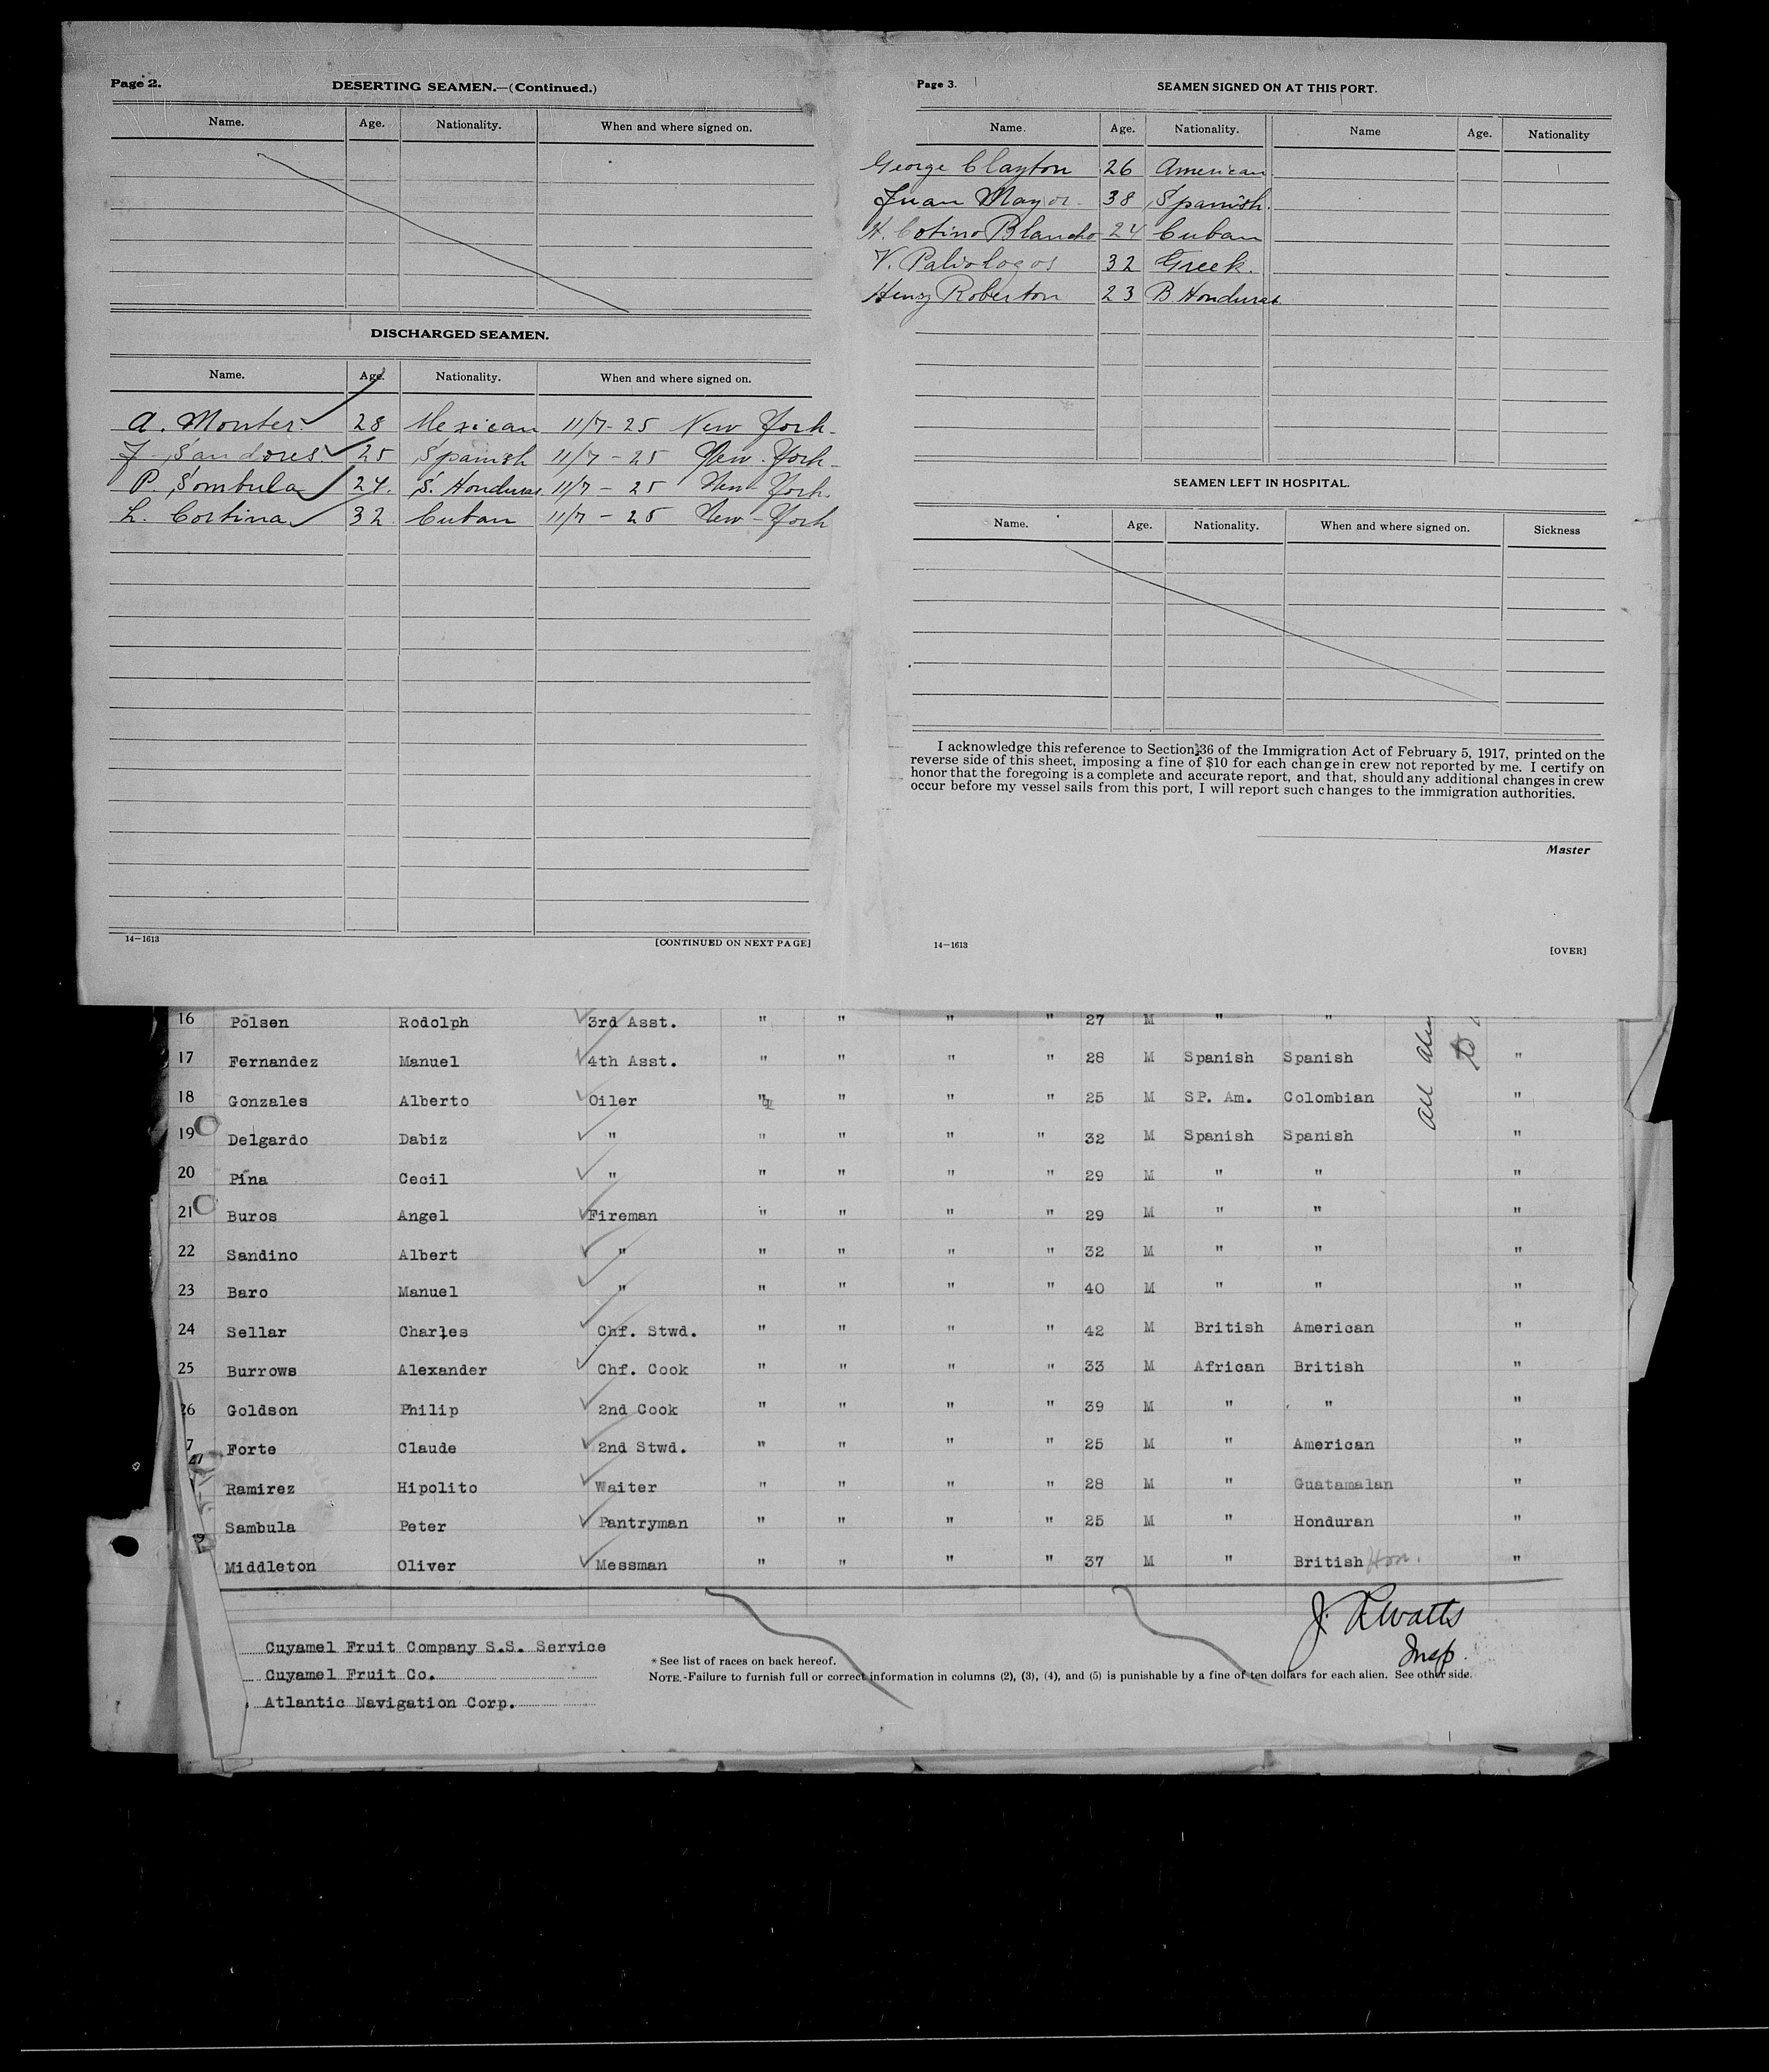 Page 2.
DESERTING SEAMEN.—(Continued.)
Name. Age. Nationality. When and where signed on.
DISCHARGED SEAMEN.
Name. Age. Nationality. When and where signed on.
A. Montes 28 Mexican 11/7-25 New York-
J. Sandores 25 Spanish 11/7-25 New-York-
P. Sombula 24. S. Honduras 11/7-25 New-York.
L. Cortina 32 Cuban 11/7-25 New-York
14—1613
[CONTINUED ON NEXT PAGE]
Page 3.
SEAMEN SIGNED ON AT THIS PORT.
Name. Age. Nationality. Name Age. Nationality
George Clayton 26 American
Juan Mayor 38 Spanish.
H. Cotino Blancho 24 Cuban
V. Paliologos 32 Greek.
Henry Roberton 23 B Honduras
SEAMEN LEFT IN HOSPITAL.
Name. Age. Nationality. When and where signed on. Sickness
I acknowledge this reference to Section 36 of the Immigration Act of February 5, 1917, printed on the
reverse side of this sheet, imposing a fine of $10 for each change in crew not reported by me. I certify on
honor that the foregoing is a complete and accurate report, and that, should any additional changes in crew
occur before my vessel sails from this port, I will report such changes to the immigration authorities.
Master
14—1613
[OVER]
16 Polsen Rodolph 3rd Asst. " " " " 27 M " "
17 Fernandez Manuel 4th Asst. " " " " 28 M Spanish Spanish "
18 Gonzales Alberto Oiler " " " " 25 M SP. Am. Colombian "
19 Delgardo Dabiz " " " " " 32 M Spanish Spanish "
20 Pina Cecil " " " " " 29 M " " "
21 Buros Angel Fireman " " " " 29 M " " "
22 Sandino Albert " " " " " 32 M " " "
23 Baro Manuel " " " " " 40 M " " "
24 Sellar Charles Chf. Stwd. " " " " 42 M British American "
25 Burrows Alexander Chf. Cook " " " " 33 M African British "
26 Goldson Philip 2nd Cook " " " " 39 M " " "
7 Forte Claude 2nd Stwd. " " " " 25 M " American "
Ramirez Hipolito Waiter " " " " 28 M " Guatamalan "
Sambula Peter Pantryman " " " " 25 M " Honduran "
Middleton Oliver Messman " " " " 37 M " British Hon. "
all
to
J. R Watts
Insp.
Cuyamel Fruit Company S.S. Service
Cuyamel Fruit Co.
Atlantic Navigation Corp.
*See list of races on back hereof.
NOTE.-Failure to furnish full or correct information in columns (2), (3), (4), and (5) is punishable by a fine of ten dollars for each alien. See other side.